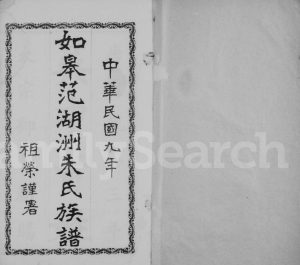 中華民國九年
如皋范湖洲朱氏族譜
祖榮謹署
FamilySearch